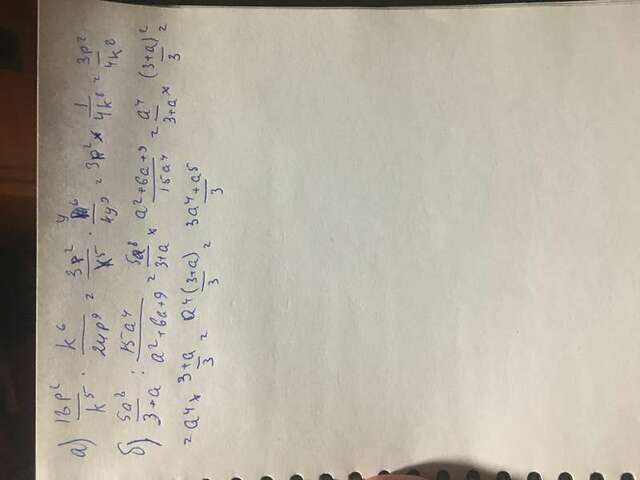 а) 18p²/k⁵ · k⁶/24p⁹ = 3p²/k⁵ · k⁶/4y⁹ = 3p² × 1/4k⁸ = 3p²/4k⁸
б) 5a⁸/3+a : 15a⁴/a²+6a+9 = 5a⁸/3+a × a²+6a+9/15a⁴ = a⁴/3+a × (3+a)²/3 =
= a⁴ × 3+a/3 = a⁴(3+a)/3 = 3a⁴+a⁵/3